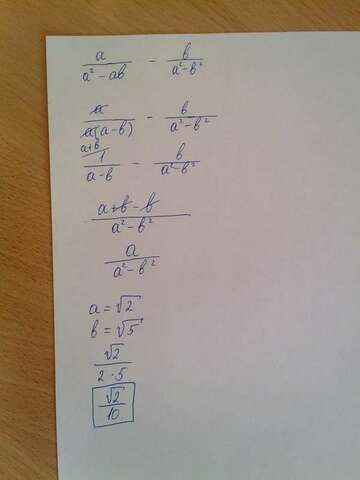 a/(a² - ab) - b/(a² - b²)
a/(a(a-b)) - b/(a² - b²)
a+b
1/(a-b) - b/(a² - b²)
(a+b-b)/(a² - b²)
a/(a² - b²)
a = √2
b = √5
√2/(2·5)
√2/10